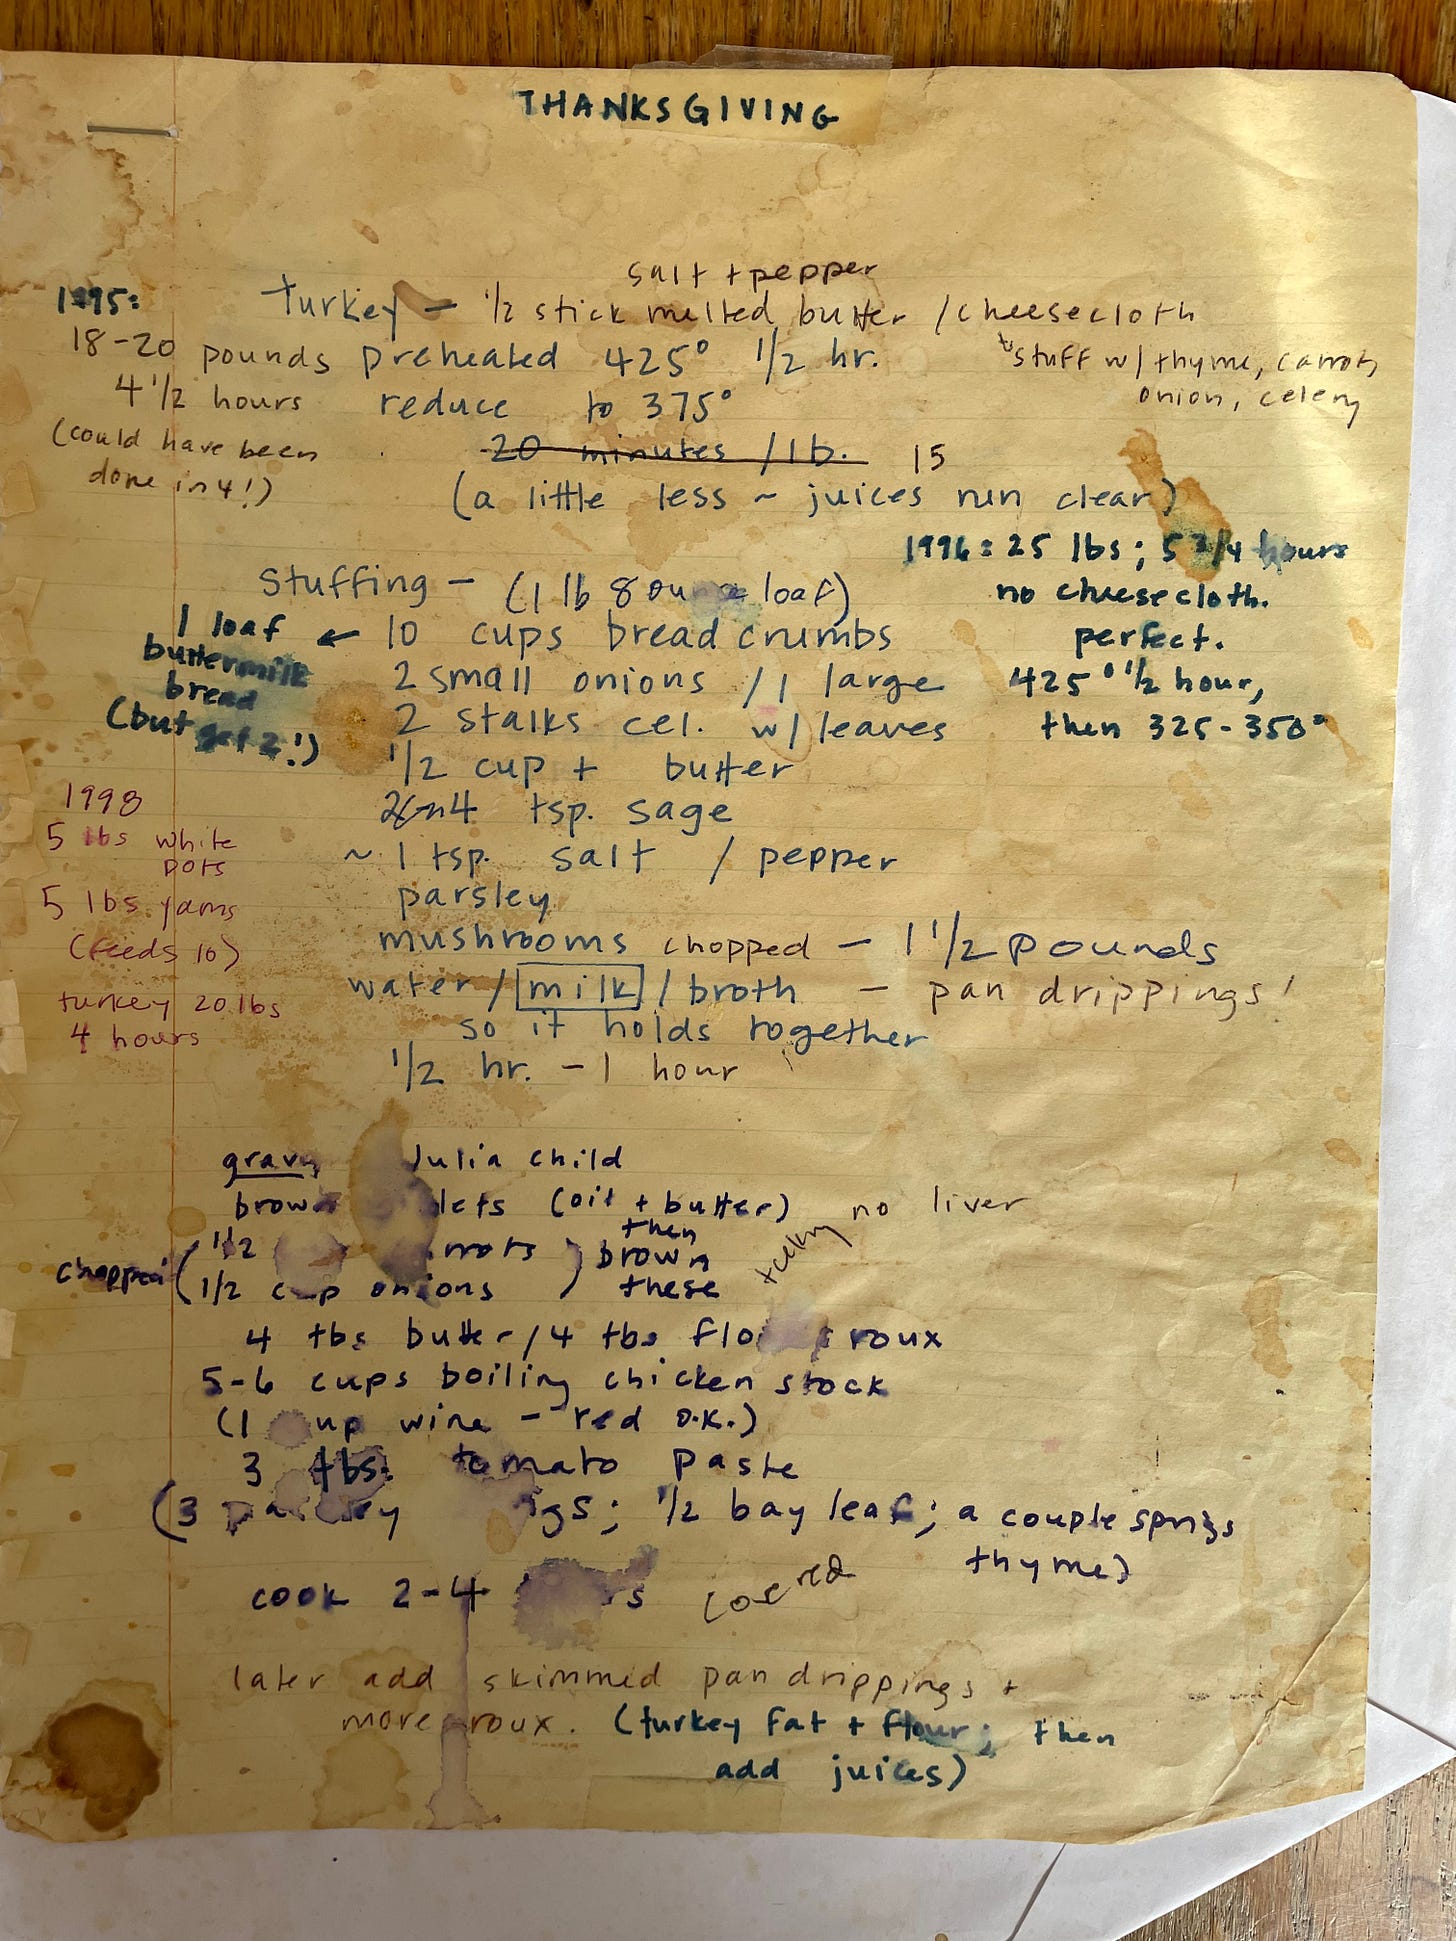 THANKSGIVING
salt + pepper
1995:
turkey – 1/2 stick melted butter / cheesecloth
18-20 pounds
preheated 425° 1/2 hr.
stuff w/ thyme, carrots,
onion, celery
4 1/2 hours
reduce to 375°
(could have been
done in 4!)
20 minutes / lb. 15
(a little less ~ juices run clear)
1996: 25 lbs; 5 3/4 hours
no cheesecloth.
perfect.
425° 1/2 hour,
then 325-350°
Stuffing – (1 lb 8 ounce loaf)
1 loaf
buttermilk
bread
(but get 2!)
← 10 cups bread crumbs
2 small onions / 1 large
2 stalks cel. w/ leaves
1/2 cup + butter
4 tsp. sage
~ 1 tsp. salt / pepper
parsley
mushrooms chopped – 1 1/2 pounds
water / milk / broth – pan drippings!
so it holds together
1/2 hr. – 1 hour
1998
5 lbs white
pots
5 lbs yams
(feeds 10)
turkey 20 lbs
4 hours
gravy Julia Child
brown (oil + butter) no liver
turkey
chopped
(1/2
1/2 cup onions )
then
brown
these
4 tbs butter / 4 tbs flour roux
5-6 cups boiling chicken stock
(1 cup wine – red o.k.)
3 tbs. tomato paste
(3 parsley sprigs; 1/2 bay leaf; a couple sprigs
thyme)
cook 2-4 hours covered
later add skimmed pan drippings +
more roux. (turkey fat + flour; then
add juices)